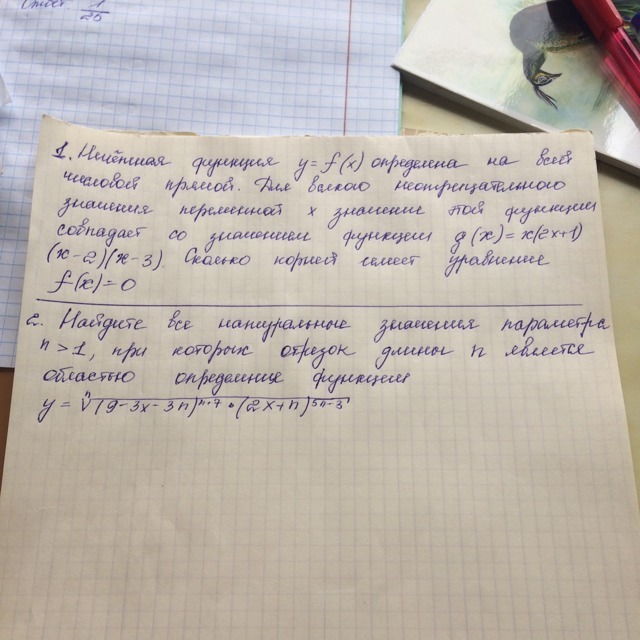 Ответ: 1/25
1. Нечётная функция y = f(x) определена на всей
числовой прямой. Для всякого неотрицательного
значения переменной x значение этой функции
совпадает со значением функции g(x) = x(2x+1)
(x-2)(x-3). Сколько корней имеет уравнение
f(x) = 0
2. Найдите все натуральные значения параметра
n > 1, при которых отрезок длины n является
областью определения функции
y = ⁿ√(9-3x-3n)ⁿ⁺⁷ · (2x+n)⁵ⁿ⁻³